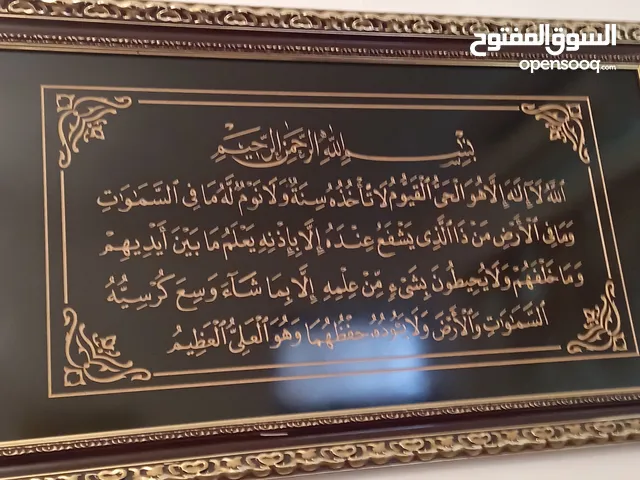 السوق المفتوح
opensooq.com
بِسْمِ اللهِ الرَّحْمٰنِ الرَّحِيْمِ
اَللّٰهُ لَآ اِلٰهَ اِلَّا هُوَ الْحَىُّ الْقَيُّوْمُ لَا تَأْخُذُهُ سِنَةٌ وَلَا نَوْمٌ لَّهُ مَا فِى السَّمٰوَاتِ
وَمَا فِى الْاَرْضِ مَنْ ذَا الَّذِى يَشْفَعُ عِنْدَهُ اِلَّا بِاِذْنِهِ يَعْلَمُ مَا بَيْنَ اَيْدِيْهِمْ
وَمَا خَلْفَهُمْ وَلَا يُحِيْطُوْنَ بِشَىْءٍ مِّنْ عِلْمِهِ اِلَّا بِمَا شَآءَ وَسِعَ كُرْسِيُّهُ
السَّمٰوَاتِ وَالْاَرْضَ وَلَا يَئُوْدُهُ حِفْظُهُمَا وَهُوَ الْعَلِىُّ الْعَظِيْمُ